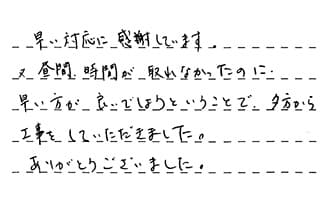 早い対応に感謝しています。
又、昼間、時間が取れなかったのに、
早い方が良いでしょうということで、夕方から
工事をしていただきました。
ありがとうございました。